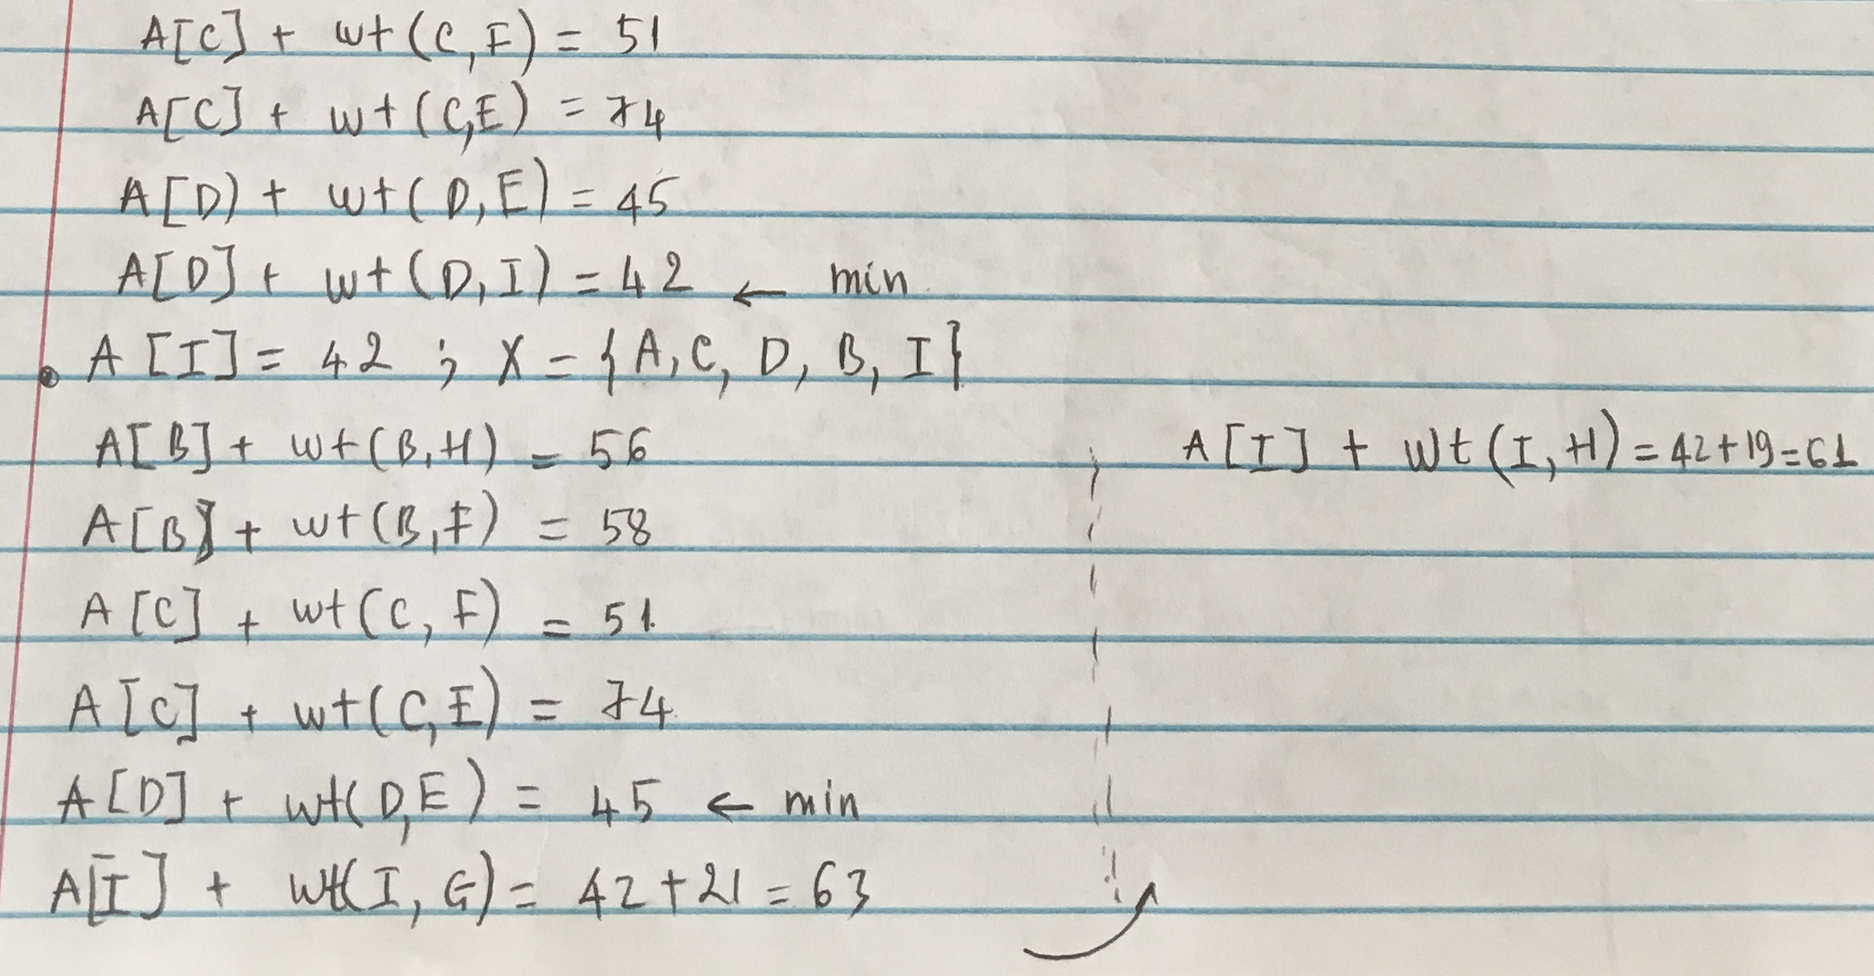 A[C] + wt(C,F) = 51
A[C] + wt(C,E) = 74
A[D) + wt(D,E) = 45
A[D] + wt(D,I) = 42 ← min
A[I] = 42 ; X = {A,C, D, B, I}
A[B] + wt(B,H) = 56
A[B] + wt(B,F) = 58
A[C] + wt(C,F) = 51
A[C] + wt(C,E) = 74
A[D] + wt(D,E) = 45 ← min
A[I] + wt(I,G) = 42+21 = 63
A[I] + wt(I,H) = 42+19=61